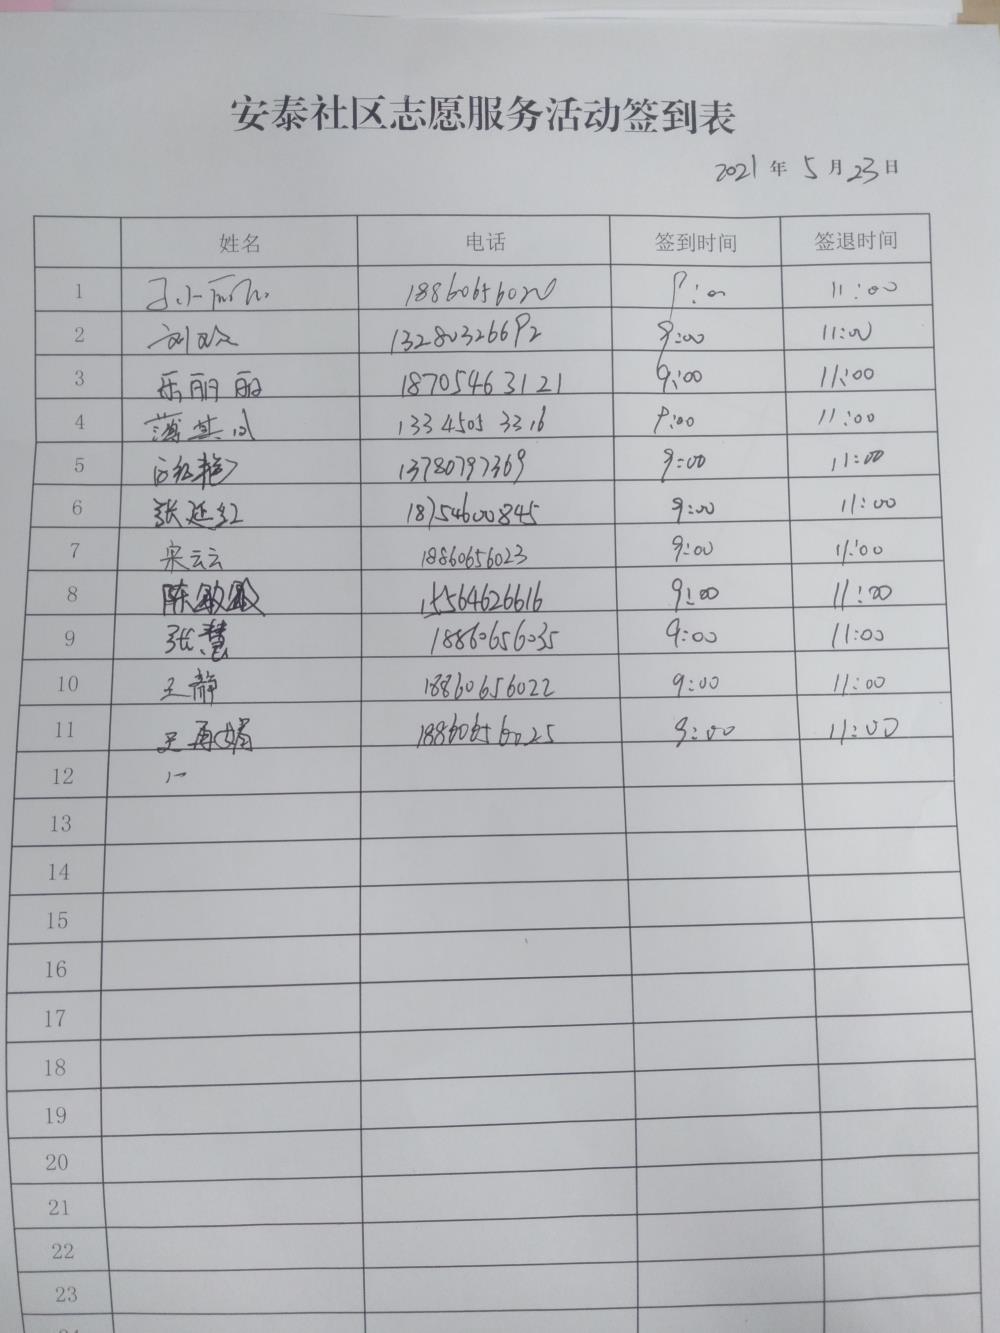 安泰社区志愿服务活动签到表
2021 年 5 月 23 日
姓名 电话 签到时间 签退时间
1 18860656020 9:00 11:00
2 刘欢 13280326692 9:00 11:00
3 乐丽丽 18705463121 9:00 11:00
4 薄其风 13345053316 9:00 11:00
5 13780797369 9:00 11:00
6 张延红 18754600845 9:00 11:00
7 宋云云 18860656023 9:00 11:00
8 陈 15564626616 9:00 11:00
9 张慧 18860656035 9:00 11:00
10 王静 18860656022 9:00 11:00
11 18860656025 9:00 11:00
12
13
14
15
16
17
18
19
20
21
22
23